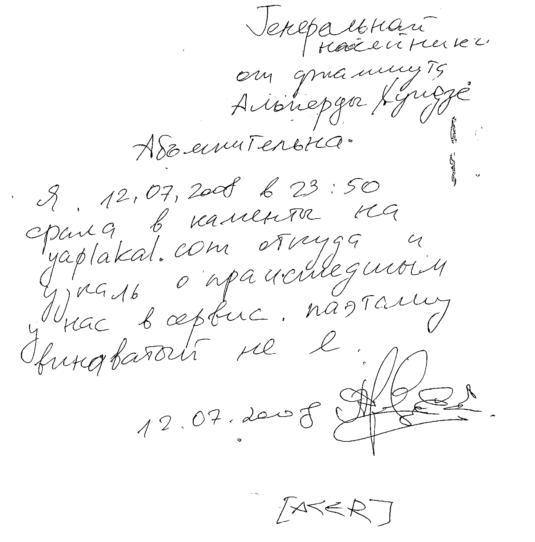 Генеральнай
насейники
от джамшута
Альперды Хундзё
Абъмнительна.
Я. 12.07.2008 в 23:50
срала в каменты на
yaplakal.com откуда и
узналь о праисшедшым
у нас в сервис. паэтаму
винаватый не е.
12.07.2008
[ACER]